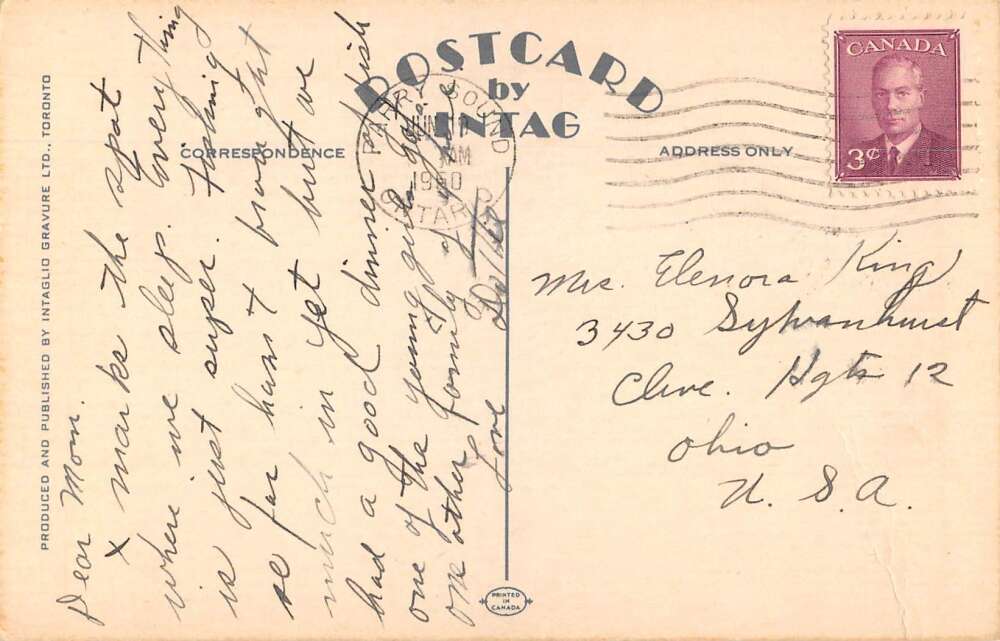 PRODUCED AND PUBLISHED BY INTAGLIO GRAVURE LTD., TORONTO
POSTCARD
by
INTAG
CORRESPONDENCE
ADDRESS ONLY
PARRY SOUND
JUN 11
AM
1950
ONTARIO
CANADA
3¢
Dear Mom.
X marks the spot
where we sleep. Everything
is just super. Fishing
so far hasn't brought
much in yet but we
had a good dinner of fish
one of the young girls gave us.
one other family of
Love Dorthe
Mrs. Elenora King
3430 Sylvanhurst
Cleve. Hgts 12
Ohio
U. S. A.
PRINTED
IN
CANADA